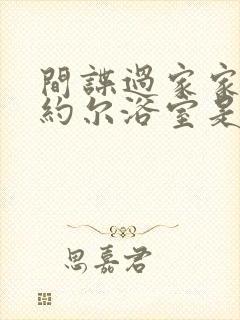 間諜過家家
約尔浴室是
思嘉君